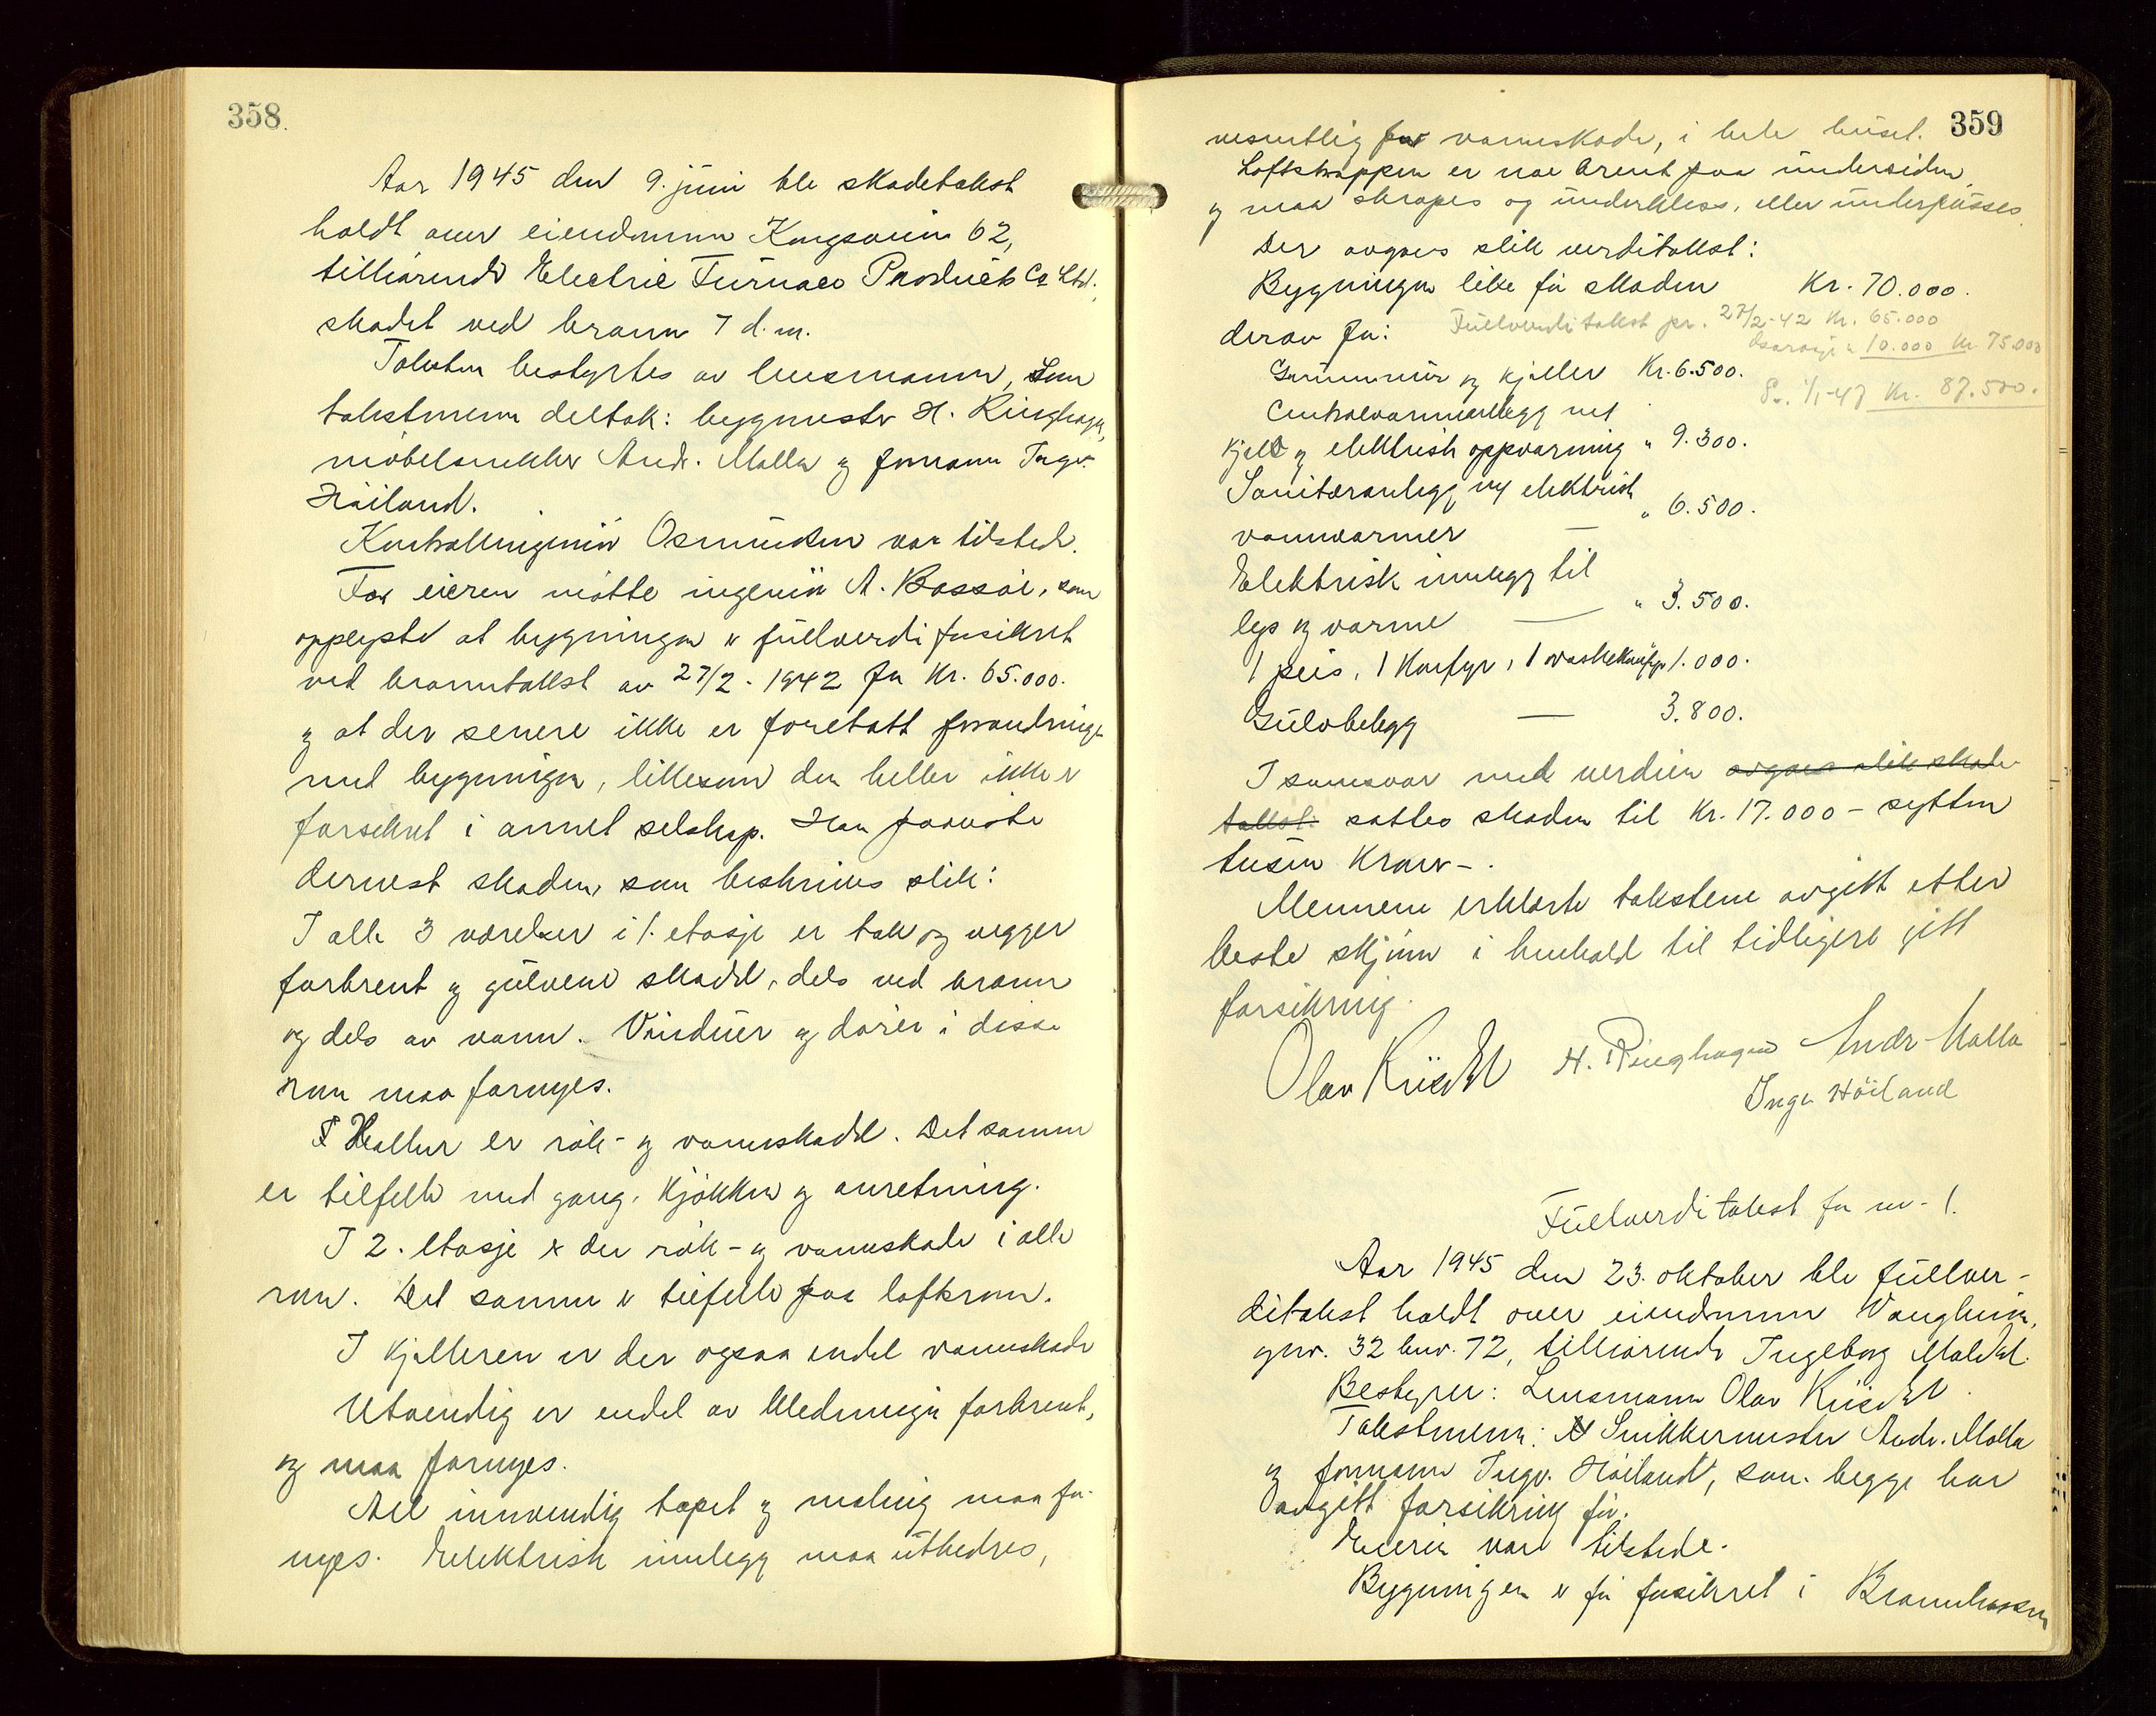 358.
Aar 1945 den 9. juni ble skadetakst
holdt over eiendommen Kongsveien 62,
tilhörende Electric Furnace Products Co Ltd.,
skadet ved brann 7 d.m.
Taksten bestyrtes av lensmannen, Som
takstmenn deltok: byggmester H. Ringhagen,
möbelsnekker Andr. Molla og formann Ingv.
Höiland.
Kontrollingeniör Osmundsen var tilstede.
For eieren mötte ingeniör A. Bassöe, som
opplyste at bygningen er fullverdiforsikret
ved branntakst av 27/2-1942 for Kr. 65.000.
og at der senere ikke er foretatt forandringer
med bygningen, likesom den heller ikke er
forsikret i annet selskap. Han foreviste
dernest skaden, som beskrives slik:
I alle 3 værelser i 1. etasje er tak og vegger
forbrent og gulvene skadd, dels ved brann
og dels av vann. Vinduer og dörer i disse
rum maa fornyes.
Hallen er rök- og vannskadd. Det samme
er tilfelle med gang, kjökken og anretning.
I 2. etasje er der rök- og vannskade i alle
rum. Det samme er tilfelle paa loftsrum.
I kjelleren er der ogsaa endel vannskade
Utvendig er endel av kledningen forbrent,
og maa fornyes.
All innvendig tapet og maling maa for-
nyes. Elektrisk innlegg maa utbedres,
359
vesentlig for vannskade, i hele huset.
Loftstrappen er noe brent paa undersiden
og maa skrapes og underkless, eller underpusses
Der avgaes slik verditakst:
Bygningen like för skaden Kr. 70.000.
Fullverditakst pr. 27/2-42 Kr. 65.000
derav for:
Garasje " 10.000 Kr 75.000
Grunnmur og kjeller Kr. 6.500.
Pr. 1/1-47 Kr. 87.500.
Centralvarmeanlegg med
kjele og elektrisk oppvarming " 9.300.
Sanitæranlegg og elektrisk
vannvarmer — " 6.500.
Elektrisk innlegg til
lys og varme — " 3.500.
1 peis, 1 komfyr, 1 vaskekomfyr 1.000.
Gulvbelegg — 3.800.
I samsvar med verdien avgaes slik skade-
takst: sattes skaden til Kr. 17.000 – sytten
tusen kroner –.
Mennene erklærte takstene avgitt etter
beste skjönn i henhold til tidligere gitt
forsikring.
Olav H. Ringhagen Andr. Molla
Ingv. Höiland
Fullverditakst for nr. 1.
Aar 1945 den 23. oktober ble fullver-
ditakst holdt over eiendommen Vangheim,
gnr. 32 bnr. 72, tilhörende Ingeborg
Bestyrer: Lensmann Olav
Takstmenn: Snikkermester Andr. Molla
og formann Ingv. Höiland, som begge har
avgitt forsikring för.
Eieren var tilstede.
Bygningen er för forsikret i Brannkassen